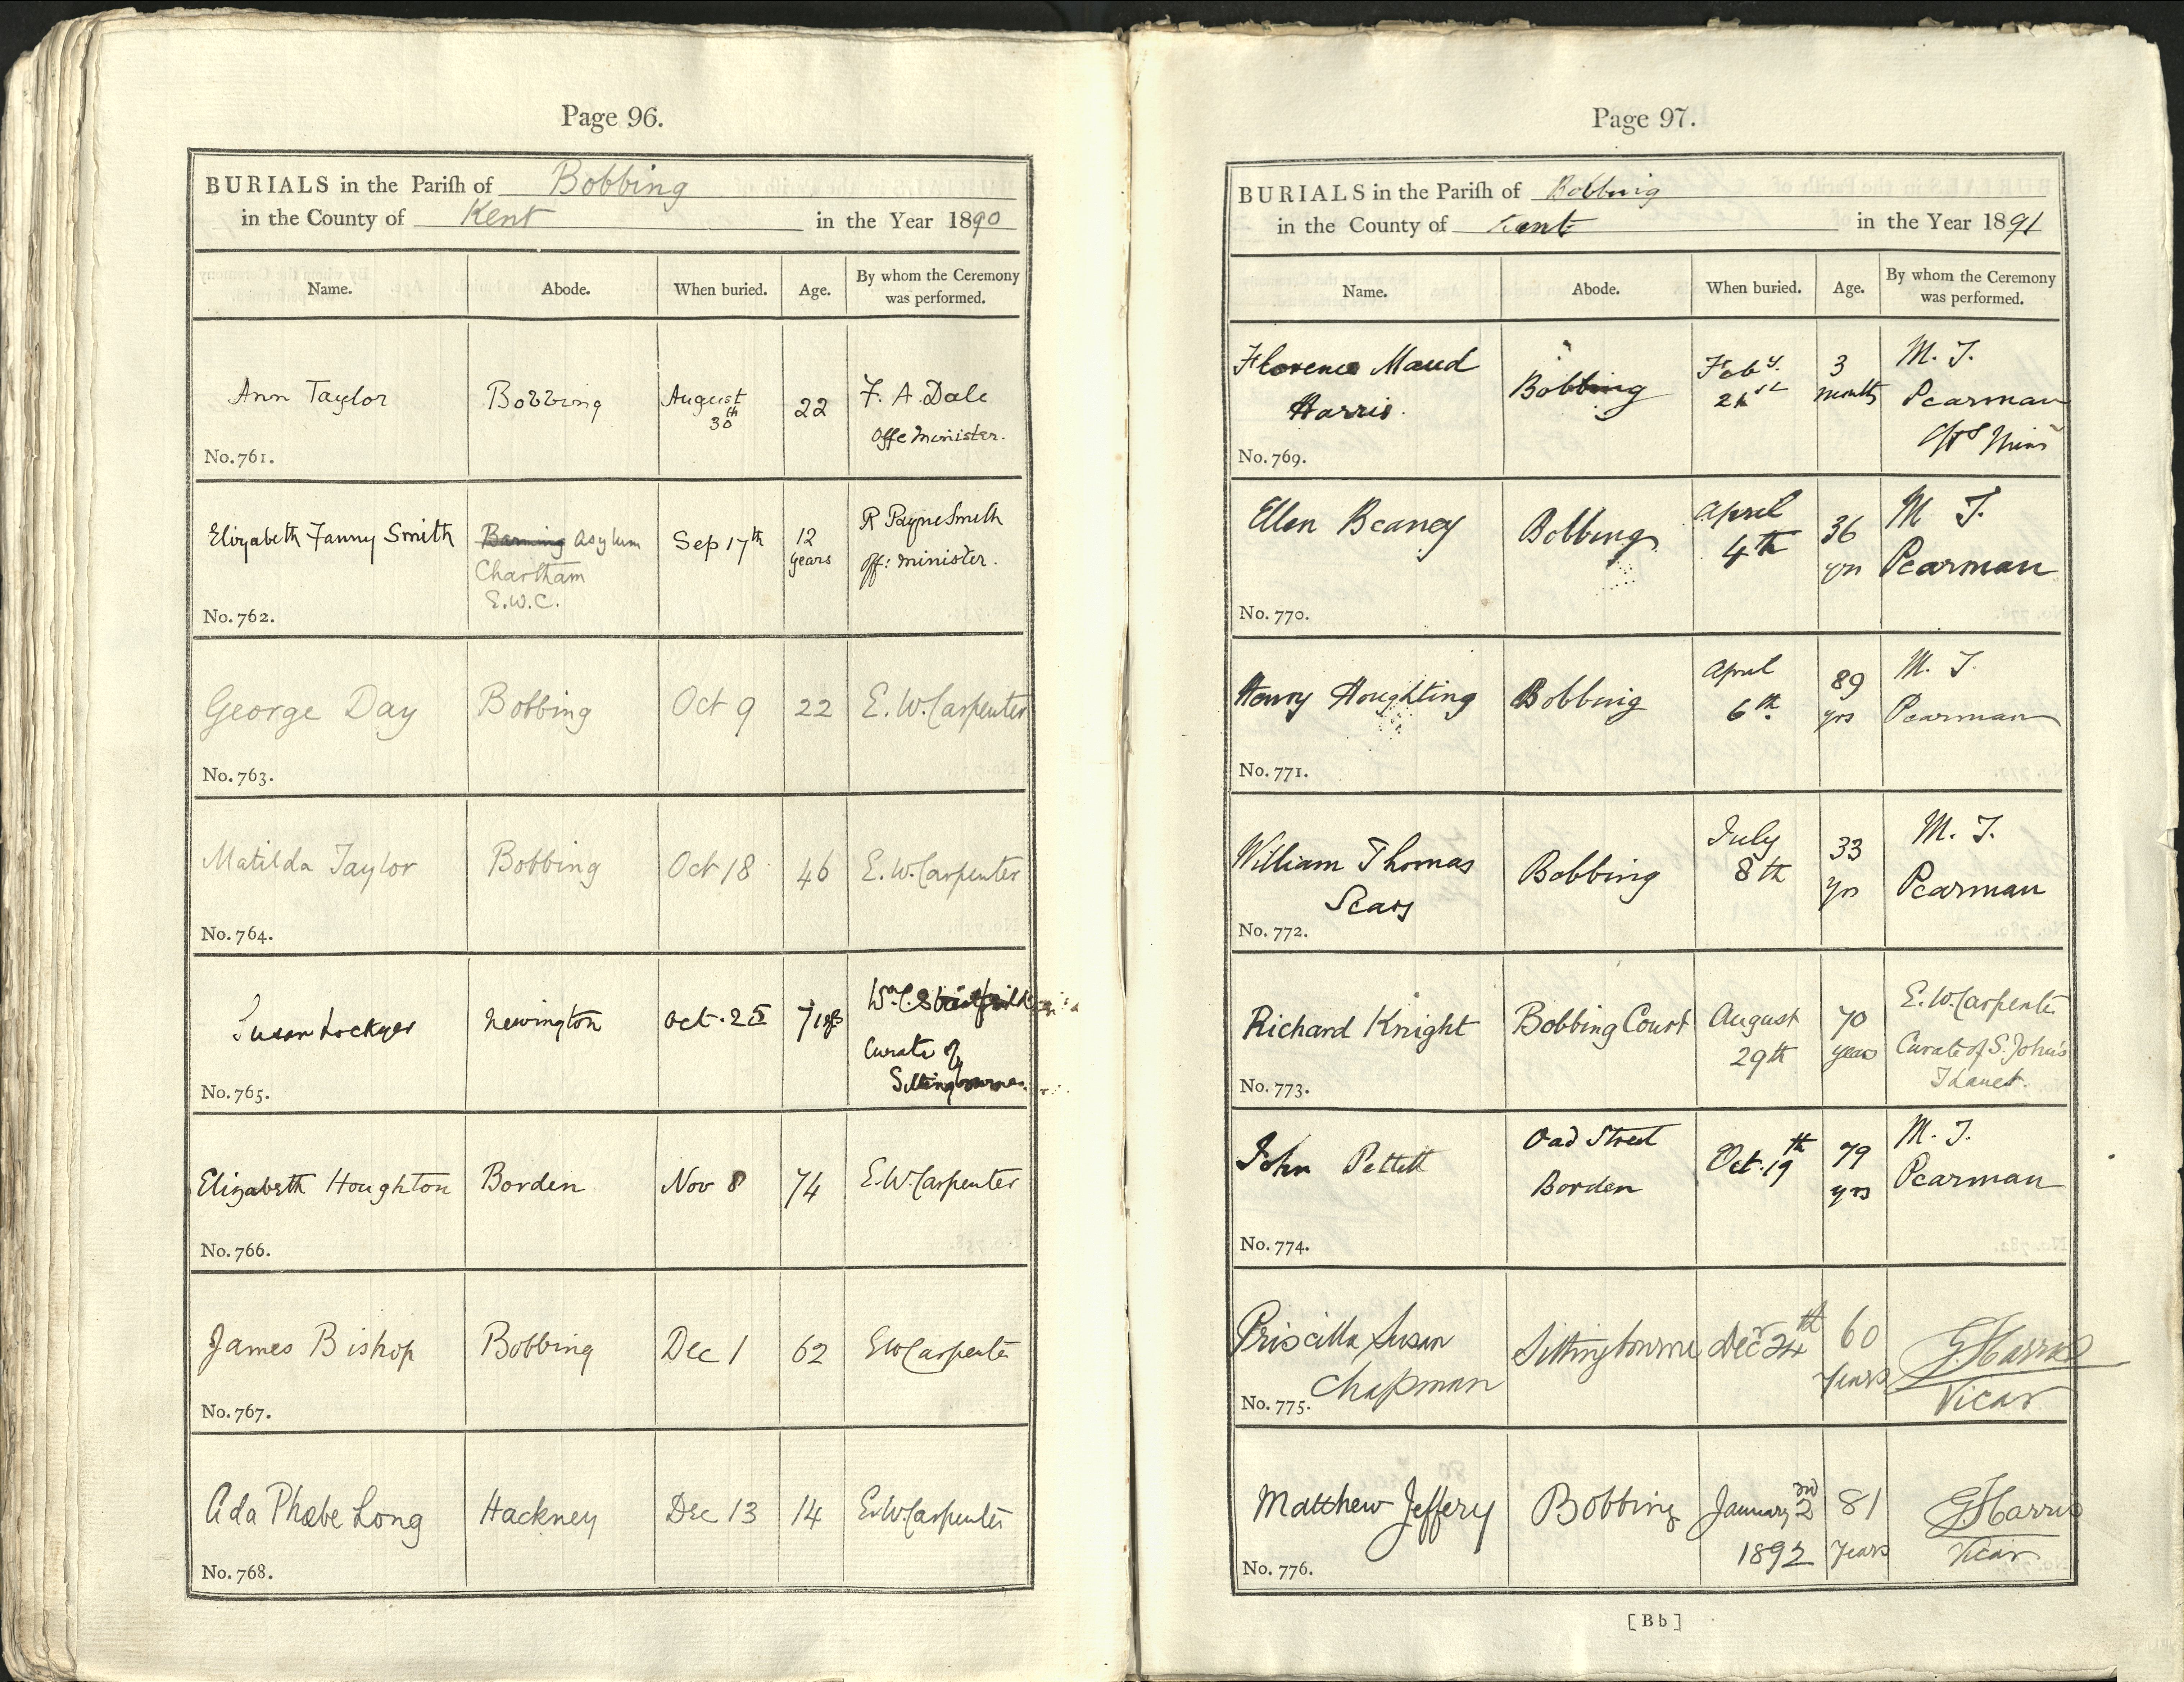 Page 96.
BURIALS in the Pariſh of Bobbing
in the County of Kent in the Year 1890
Name. Abode. When buried. Age. By whom the Ceremony was performed.
Ann Taylor Bobbing August 30th 22 F. A. Dale
Offe Minister.
No. 761.
Elizabeth Fanny Smith Barming Asylum Sep 17th 12 years R Payne Smith
Chartham off: minister.
E.W.C.
No. 762.
George Day Bobbing Oct 9 22 E. W. Carpenter
No. 763.
Matilda Taylor Bobbing Oct 18 46 E. W. Carpenter
No. 764.
Susan Lockyer Newington Oct. 71 yrs Wm. C.
Curate of
Sittingbourne.
No. 765.
Elizabeth Houghton Borden Nov 8 74 E. W. Carpenter
No. 766.
James Bishop Bobbing Dec 1 62 EW Carpenter
No. 767.
Ada Phœbe Long Hackney Dec 13 14 E.W. Carpenter
No. 768.
Page 97.
BURIALS in the Pariſh of Bobbing
in the County of Kent in the Year 1891
Name. Abode. When buried. Age. By whom the Ceremony was performed.
Florence Maud Bobbing Feby. 21st 3 months M. J.
Harris. Pearman
No. 769.
Ellen Beaney Bobbing April 4th 36 yrs M J.
Pearman
No. 770.
Henry Houghting Bobbing April 6th. 89 yrs M. J.
Pearman
No. 771.
William Thomas Bobbing July 8th 33 yrs M. J.
Sears Pearman
No. 772.
Richard Knight Bobbing Court August 29th 70 years E. W. Carpenter
Curate of S. John's
Thanet.
No. 773.
John Pettett Oad Street Oct. 19th 79 yrs M. J.
Borden Pearman
No. 774.
Priscilla Susan Sittingbourne Decr 24th 60 Years G. Harris
Chapman Vicar
No. 775.
Matthew Jeffery Bobbing January 2nd 1892 81 Years G. Harris
Vicar
No. 776.
[Bb]